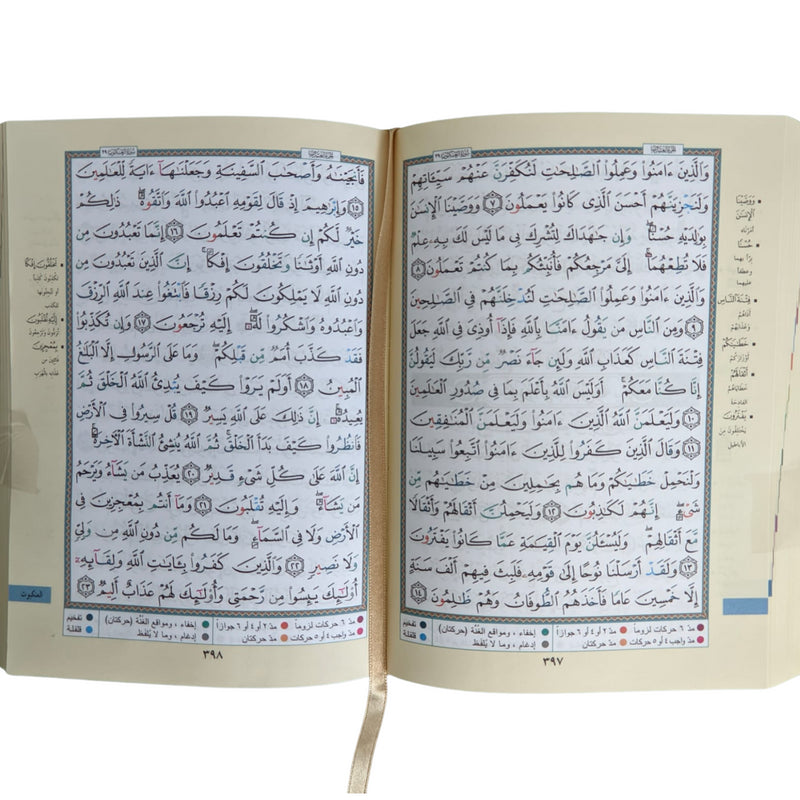 وَٱلَّذِينَ ءَامَنُوا۟ وَعَمِلُوا۟ ٱلصَّٰلِحَٰتِ لَنُكَفِّرَنَّ عَنْهُمْ سَيِّـَٔاتِهِمْ
وَلَنَجْزِيَنَّهُمْ أَحْسَنَ ٱلَّذِى كَانُوا۟ يَعْمَلُونَ ٧ وَوَصَّيْنَا ٱلْإِنسَٰنَ
بِوَٰلِدَيْهِ حُسْنًا ۖ وَإِن جَٰهَدَاكَ لِتُشْرِكَ بِى مَا لَيْسَ لَكَ بِهِۦ عِلْمٌ
فَلَا تُطِعْهُمَآ ۚ إِلَىَّ مَرْجِعُكُمْ فَأُنَبِّئُكُم بِمَا كُنتُمْ تَعْمَلُونَ ٨
وَٱلَّذِينَ ءَامَنُوا۟ وَعَمِلُوا۟ ٱلصَّٰلِحَٰتِ لَنُدْخِلَنَّهُمْ فِى ٱلصَّٰلِحِينَ
٩ وَمِنَ ٱلنَّاسِ مَن يَقُولُ ءَامَنَّا بِٱللَّهِ فَإِذَآ أُوذِىَ فِى ٱللَّهِ جَعَلَ
فِتْنَةَ ٱلنَّاسِ كَعَذَابِ ٱللَّهِ وَلَئِن جَآءَ نَصْرٌ مِّن رَّبِّكَ لَيَقُولُنَّ
إِنَّا كُنَّا مَعَكُمْ ۚ أَوَلَيْسَ ٱللَّهُ بِأَعْلَمَ بِمَا فِى صُدُورِ ٱلْعَٰلَمِينَ
١٠ وَلَيَعْلَمَنَّ ٱللَّهُ ٱلَّذِينَ ءَامَنُوا۟ وَلَيَعْلَمَنَّ ٱلْمُنَٰفِقِينَ
١١ وَقَالَ ٱلَّذِينَ كَفَرُوا۟ لِلَّذِينَ ءَامَنُوا۟ ٱتَّبِعُوا۟ سَبِيلَنَا
وَلْنَحْمِلْ خَطَٰيَٰكُمْ وَمَا هُم بِحَٰمِلِينَ مِنْ خَطَٰيَٰهُم مِّن
شَىْءٍ ۖ إِنَّهُمْ لَكَٰذِبُونَ ١٢ وَلَيَحْمِلُنَّ أَثْقَالَهُمْ وَأَثْقَالًا
مَّعَ أَثْقَالِهِمْ ۖ وَلَيُسْـَٔلُنَّ يَوْمَ ٱلْقِيَٰمَةِ عَمَّا كَانُوا۟ يَفْتَرُونَ
١٣ وَلَقَدْ أَرْسَلْنَا نُوحًا إِلَىٰ قَوْمِهِۦ فَلَبِثَ فِيهِمْ أَلْفَ سَنَةٍ
إِلَّا خَمْسِينَ عَامًا فَأَخَذَهُمُ ٱلطُّوفَانُ وَهُمْ ظَٰلِمُونَ ١٤
وَوَصَّيْنَا
ٱلْإِنسَٰنَ
أمرناه
حُسْنًا
برًّا بهما
وعطفًا
عليهما
فِتْنَةَ ٱلنَّاسِ
أذاهم
وعذابهم
خَطَٰيَٰكُمْ
أوزاركم
أَثْقَالَهُمْ
خطاياهم
الفادحة
يَفْتَرُونَ
يختلقون من
الأباطيل
مدّ ٦ حركات لزوماً مدّ ٢ أو ٤ أو ٦ جوازاً إخفاء، ومواقع الغُنَّة (حركتان) تفخيم
مدّ واجب ٤ أو ٥ حركات مدّ حركتان إدغام، وما لا يُلفَظ قلقلة
٣٩٧
فَأَنجَيْنَٰهُ وَأَصْحَٰبَ ٱلسَّفِينَةِ وَجَعَلْنَٰهَآ ءَايَةً لِّلْعَٰلَمِينَ
١٥ وَإِبْرَٰهِيمَ إِذْ قَالَ لِقَوْمِهِ ٱعْبُدُوا۟ ٱللَّهَ وَٱتَّقُوهُ ۖ ذَٰلِكُمْ
خَيْرٌ لَّكُمْ إِن كُنتُمْ تَعْلَمُونَ ١٦ إِنَّمَا تَعْبُدُونَ مِن
دُونِ ٱللَّهِ أَوْثَٰنًا وَتَخْلُقُونَ إِفْكًا ۚ إِنَّ ٱلَّذِينَ تَعْبُدُونَ مِن
دُونِ ٱللَّهِ لَا يَمْلِكُونَ لَكُمْ رِزْقًا فَٱبْتَغُوا۟ عِندَ ٱللَّهِ ٱلرِّزْقَ
وَٱعْبُدُوهُ وَٱشْكُرُوا۟ لَهُۥٓ ۖ إِلَيْهِ تُرْجَعُونَ ١٧ وَإِن تُكَذِّبُوا۟
فَقَدْ كَذَّبَ أُمَمٌ مِّن قَبْلِكُمْ ۖ وَمَا عَلَى ٱلرَّسُولِ إِلَّا ٱلْبَلَٰغُ
ٱلْمُبِينُ ١٨ أَوَلَمْ يَرَوْا۟ كَيْفَ يُبْدِئُ ٱللَّهُ ٱلْخَلْقَ ثُمَّ
يُعِيدُهُۥٓ ۚ إِنَّ ذَٰلِكَ عَلَى ٱللَّهِ يَسِيرٌ ١٩ قُلْ سِيرُوا۟ فِى ٱلْأَرْضِ
فَٱنظُرُوا۟ كَيْفَ بَدَأَ ٱلْخَلْقَ ۚ ثُمَّ ٱللَّهُ يُنشِئُ ٱلنَّشْأَةَ ٱلْءَاخِرَةَ ۚ
إِنَّ ٱللَّهَ عَلَىٰ كُلِّ شَىْءٍ قَدِيرٌ ٢٠ يُعَذِّبُ مَن يَشَآءُ وَيَرْحَمُ
مَن يَشَآءُ ۖ وَإِلَيْهِ تُقْلَبُونَ ٢١ وَمَآ أَنتُم بِمُعْجِزِينَ فِى
ٱلْأَرْضِ وَلَا فِى ٱلسَّمَآءِ ۖ وَمَا لَكُم مِّن دُونِ ٱللَّهِ مِن وَلِىٍّ
وَلَا نَصِيرٍ ٢٢ وَٱلَّذِينَ كَفَرُوا۟ بِـَٔايَٰتِ ٱللَّهِ وَلِقَآئِهِۦٓ
أُو۟لَٰٓئِكَ يَئِسُوا۟ مِن رَّحْمَتِى وَأُو۟لَٰٓئِكَ لَهُمْ عَذَابٌ أَلِيمٌ ٢٣
تَخْلُقُونَ إِفْكًا
إِلَيْهِ تُقْلَبُونَ
بِمُعْجِزِينَ
العنكبوت
مدّ ٦ حركات لزوماً مدّ ٢ أو ٤ أو ٦ جوازاً إخفاء، ومواقع الغُنَّة (حركتان) تفخيم
مدّ واجب ٤ أو ٥ حركات مدّ حركتان إدغام، وما لا يُلفَظ قلقلة
٣٩٨